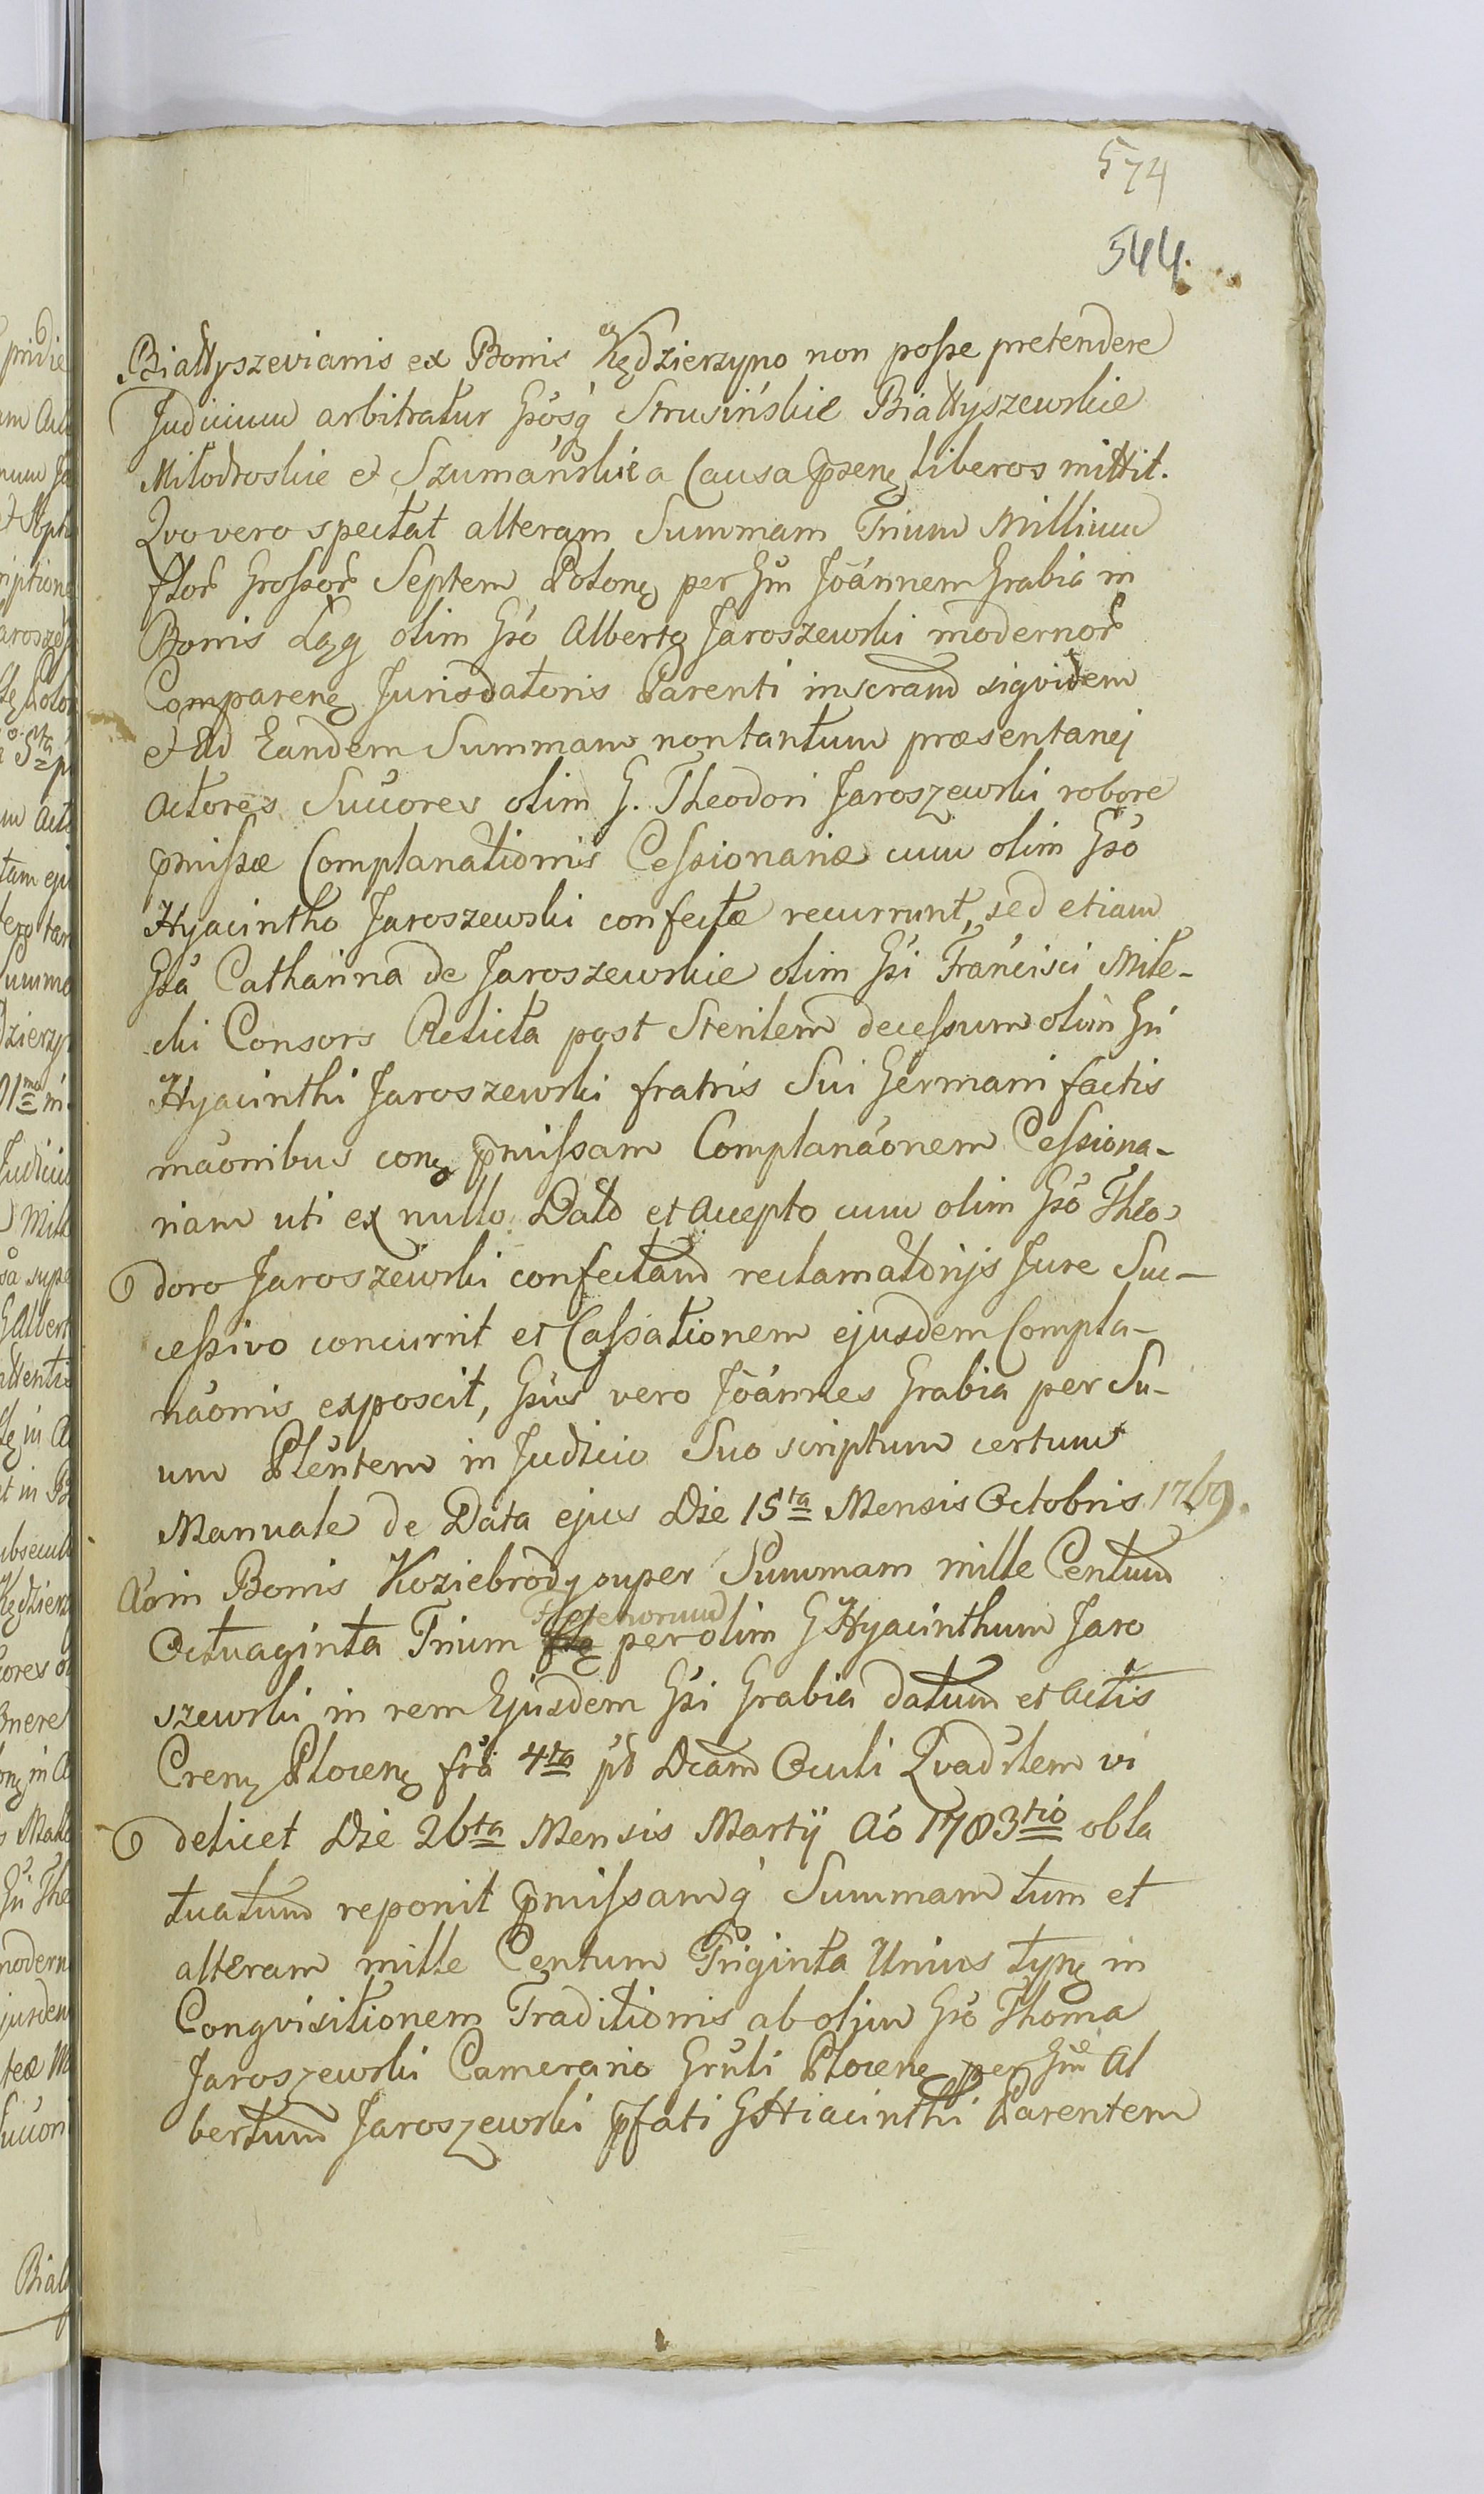 574
544.
Białłyszevianis ex Bonis Kędzierzyno non posse pretendere
Judicium arbitratur Gsosq́ Strusińskie Białłyszewskie
Miłodroskie et Szumańskie a Causa p̄senę liberos mittit.
Qvo vero spectat alteram Summam Trium Millium
flor̄ Grossor̄ Septem Polonę per Gm̄ Joánnem Grabia in
Bonis Łąg olim Gso Alberto Jaroszewski modernor̄
Comparenę Jurisdatoris Parenti inscram̄ siqvidem
et Ad Eandem Summam non tantum præsentanej
Actores Succores olim G. Theodori Jaroszewski robore
p̄missæ Complanationis Cessionariæ cum olim Gso
Hyacintho Jaroszewski confectæ recurrunt, sed etiam
Gsa Catharina de Jaroszewskie olim Gsi Francisci Mile-
cki Consors Relicta post Sterilem decessum olim Gn̄
Hyacinthi Jaroszewski fratris Sui Germani factis
máonibus conę p̄missam Complanáonem Cessiona-
riam uti ex nullo Dato et Accepto cum olim Gso Theo
doro Jaroszewski confectam reclamatorijs Jure Suc-
cessivo concurrit et Cassationem ejusdem Compla-
náonis exposcit, Gsus vero Joánnes Grabia per Su-
um Pleńtem in Judicio Suo scriptum certum
Manuale de Data ejus Die 15ta Mensis Octobris 1769.
Aó in Bonis Koziebrody super Summam mille Centum
Octuaginta Trium Florenorum per olim G Hyacinthum Jaro
szewski in rem Ejusdem Gsi Grabia datum et Actis
Crenę Plocenę fr̄a 4ta pt̄ Dcam̄ Oculi Qvadr̄lem vi
delicet Die 26ta Mensis Martÿ Aó 1783tio obla
tuatum reponit p̄missamq́ Summam tum et
alteram mille Centum Triginta Unius tynę in
Conqvisitionem Traditionis ab olim Gso Thoma
Jaroszewski Camerario Grn̄li Plocenę per Gm̄ Al
bertum Jaroszewski p̄fati G Hiacinthi Parentem